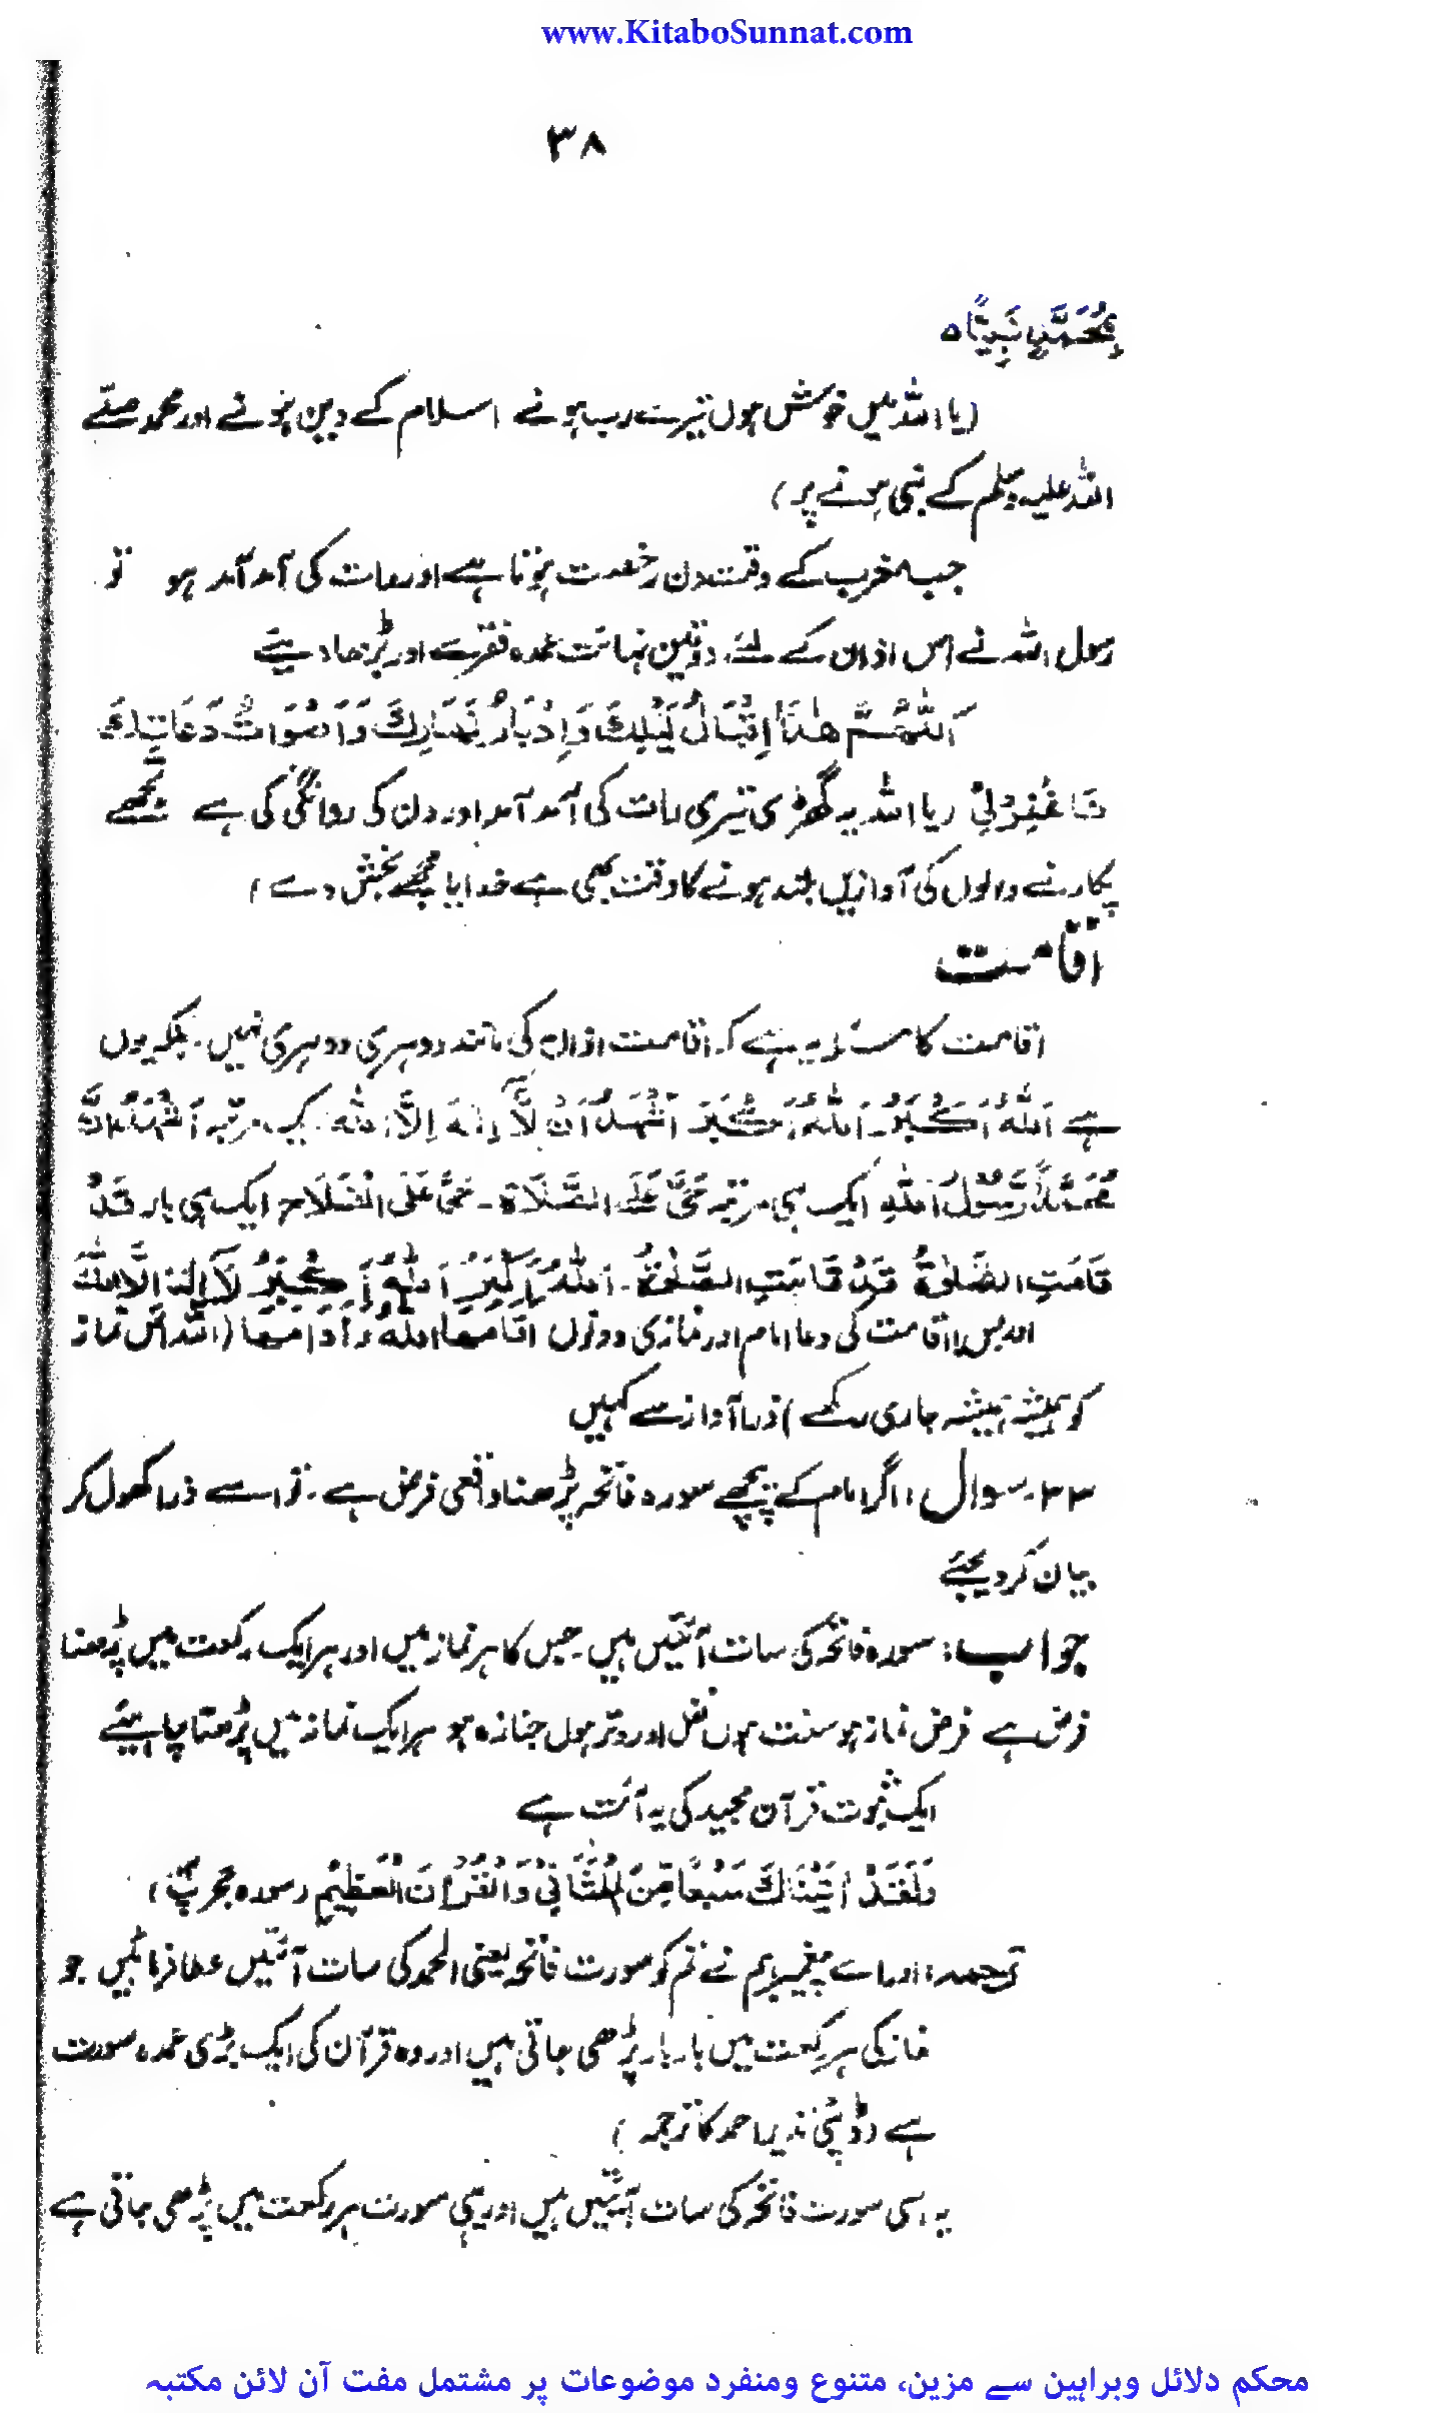 www.KitaboSunnat.com
٣٨
بِمُحَمَّدٍ نَبِيًّا ه
(یا اللہ میں خوش ہوں تیرے رب ہونے اسلام کے دین ہونے اور محمد صلے
اللہ علیہ وسلم کے نبی ہونے پر)
جب مغرب کے وقت دن رخصت ہوتا ہے اور رات کی آمد آمد ہو تو
رسول اللہ نے اس اذان کے لئے دو تین نہائت عمدہ فقرے اور پڑھا دیئے
اَللّٰهُمَّ هٰذَا اِقْبَالُ لَيْلِكَ وَاِدْبَارُ نَهَارِكَ وَاَصْوَاتُ دَعَاتِكَ
فَاغْفِرْلِيْ (یا اللہ یہ گھڑی تیری رات کی آمد آمد اور دن کی روانگی کی ہے تجھے
پکارنے والوں کی آوازیں بلند ہونے کا وقت بھی ہے خدایا مجھے بخش دے)
اقامت
اقامت کا مسئلہ یہ ہے کہ اقامت اذان کی مانند دوہری دوہری نہیں۔ بلکہ یوں
ہے اَللّٰهُ اَكْبَرُ۔ اَللّٰهُ اَكْبَرُ اَشْهَدُ اَنْ لَّآ اِلٰهَ اِلَّا اللّٰهُ ایک مرتبہ اَشْهَدُ اَنَّ
مُحَمَّدًا رَّسُوْلُ اللّٰهِ ایک ہی مرتبہ حَیَّ عَلَى الصَّلَاة۔ حَیَّ عَلَى الْفَلَاح ایک ہی بار قَدْ
قَامَتِ الصَّلٰوةُ قَدْ قَامَتِ الصَّلٰوةُ۔ اَللّٰهُ اَكْبَرُ اَللّٰهُ اَكْبَرُ لَآ اِلٰهَ اِلَّا اللّٰهُ
اور بس، اقامت کی دعا امام اور نمازی دونوں اقامها الله وادامها (اللہ اس نماز
کو ہمیشہ ہمیشہ جاری رکھے) ذرا آواز سے کہیں
٣٣۔ سوال: اگر امام کے پیچھے سورہ فاتحہ پڑھنا واقعی فرض ہے۔ تو اسے ذرا کھول کر
بیان کر دیجئے
جواب: سورہ فاتحہ کی سات آئتیں ہیں۔ جس کا ہر نماز میں اور ہر ایک رکعت میں پڑھنا
فرض ہے فرض نماز ہو سنت ہوں نفل اور وتر ہوں جنازہ ہو ہر ایک نماز میں پڑھنا چاہیئے
ایک ثبوت قرآن مجید کی یہ آئت ہے
وَلَقَدْ اٰتَيْنَاكَ سَبْعًا مِّنَ الْمَثَانِيْ وَالْقُرْاٰنَ الْعَظِيْمِ (سورہ حجر پ)
ترجمہ: اور اے پیغمبر ہم نے تم کو سورت فاتحہ یعنی الحمد کی سات آئتیں عطا فرمائیں جو
نماز کی ہر رکعت میں بار بار پڑھی جاتی ہیں اور وہ قرآن کی ایک بڑی عمدہ سورت
ہے (ڈپٹی نذیر احمد کا ترجمہ)
یہ اسی سورت فاتحہ کی سات آئتیں ہیں اور یہی سورت ہر رکعت میں پڑھی جاتی ہے
محکم دلائل وبراہین سے مزین، متنوع ومنفرد موضوعات پر مشتمل مفت آن لائن مکتبہ